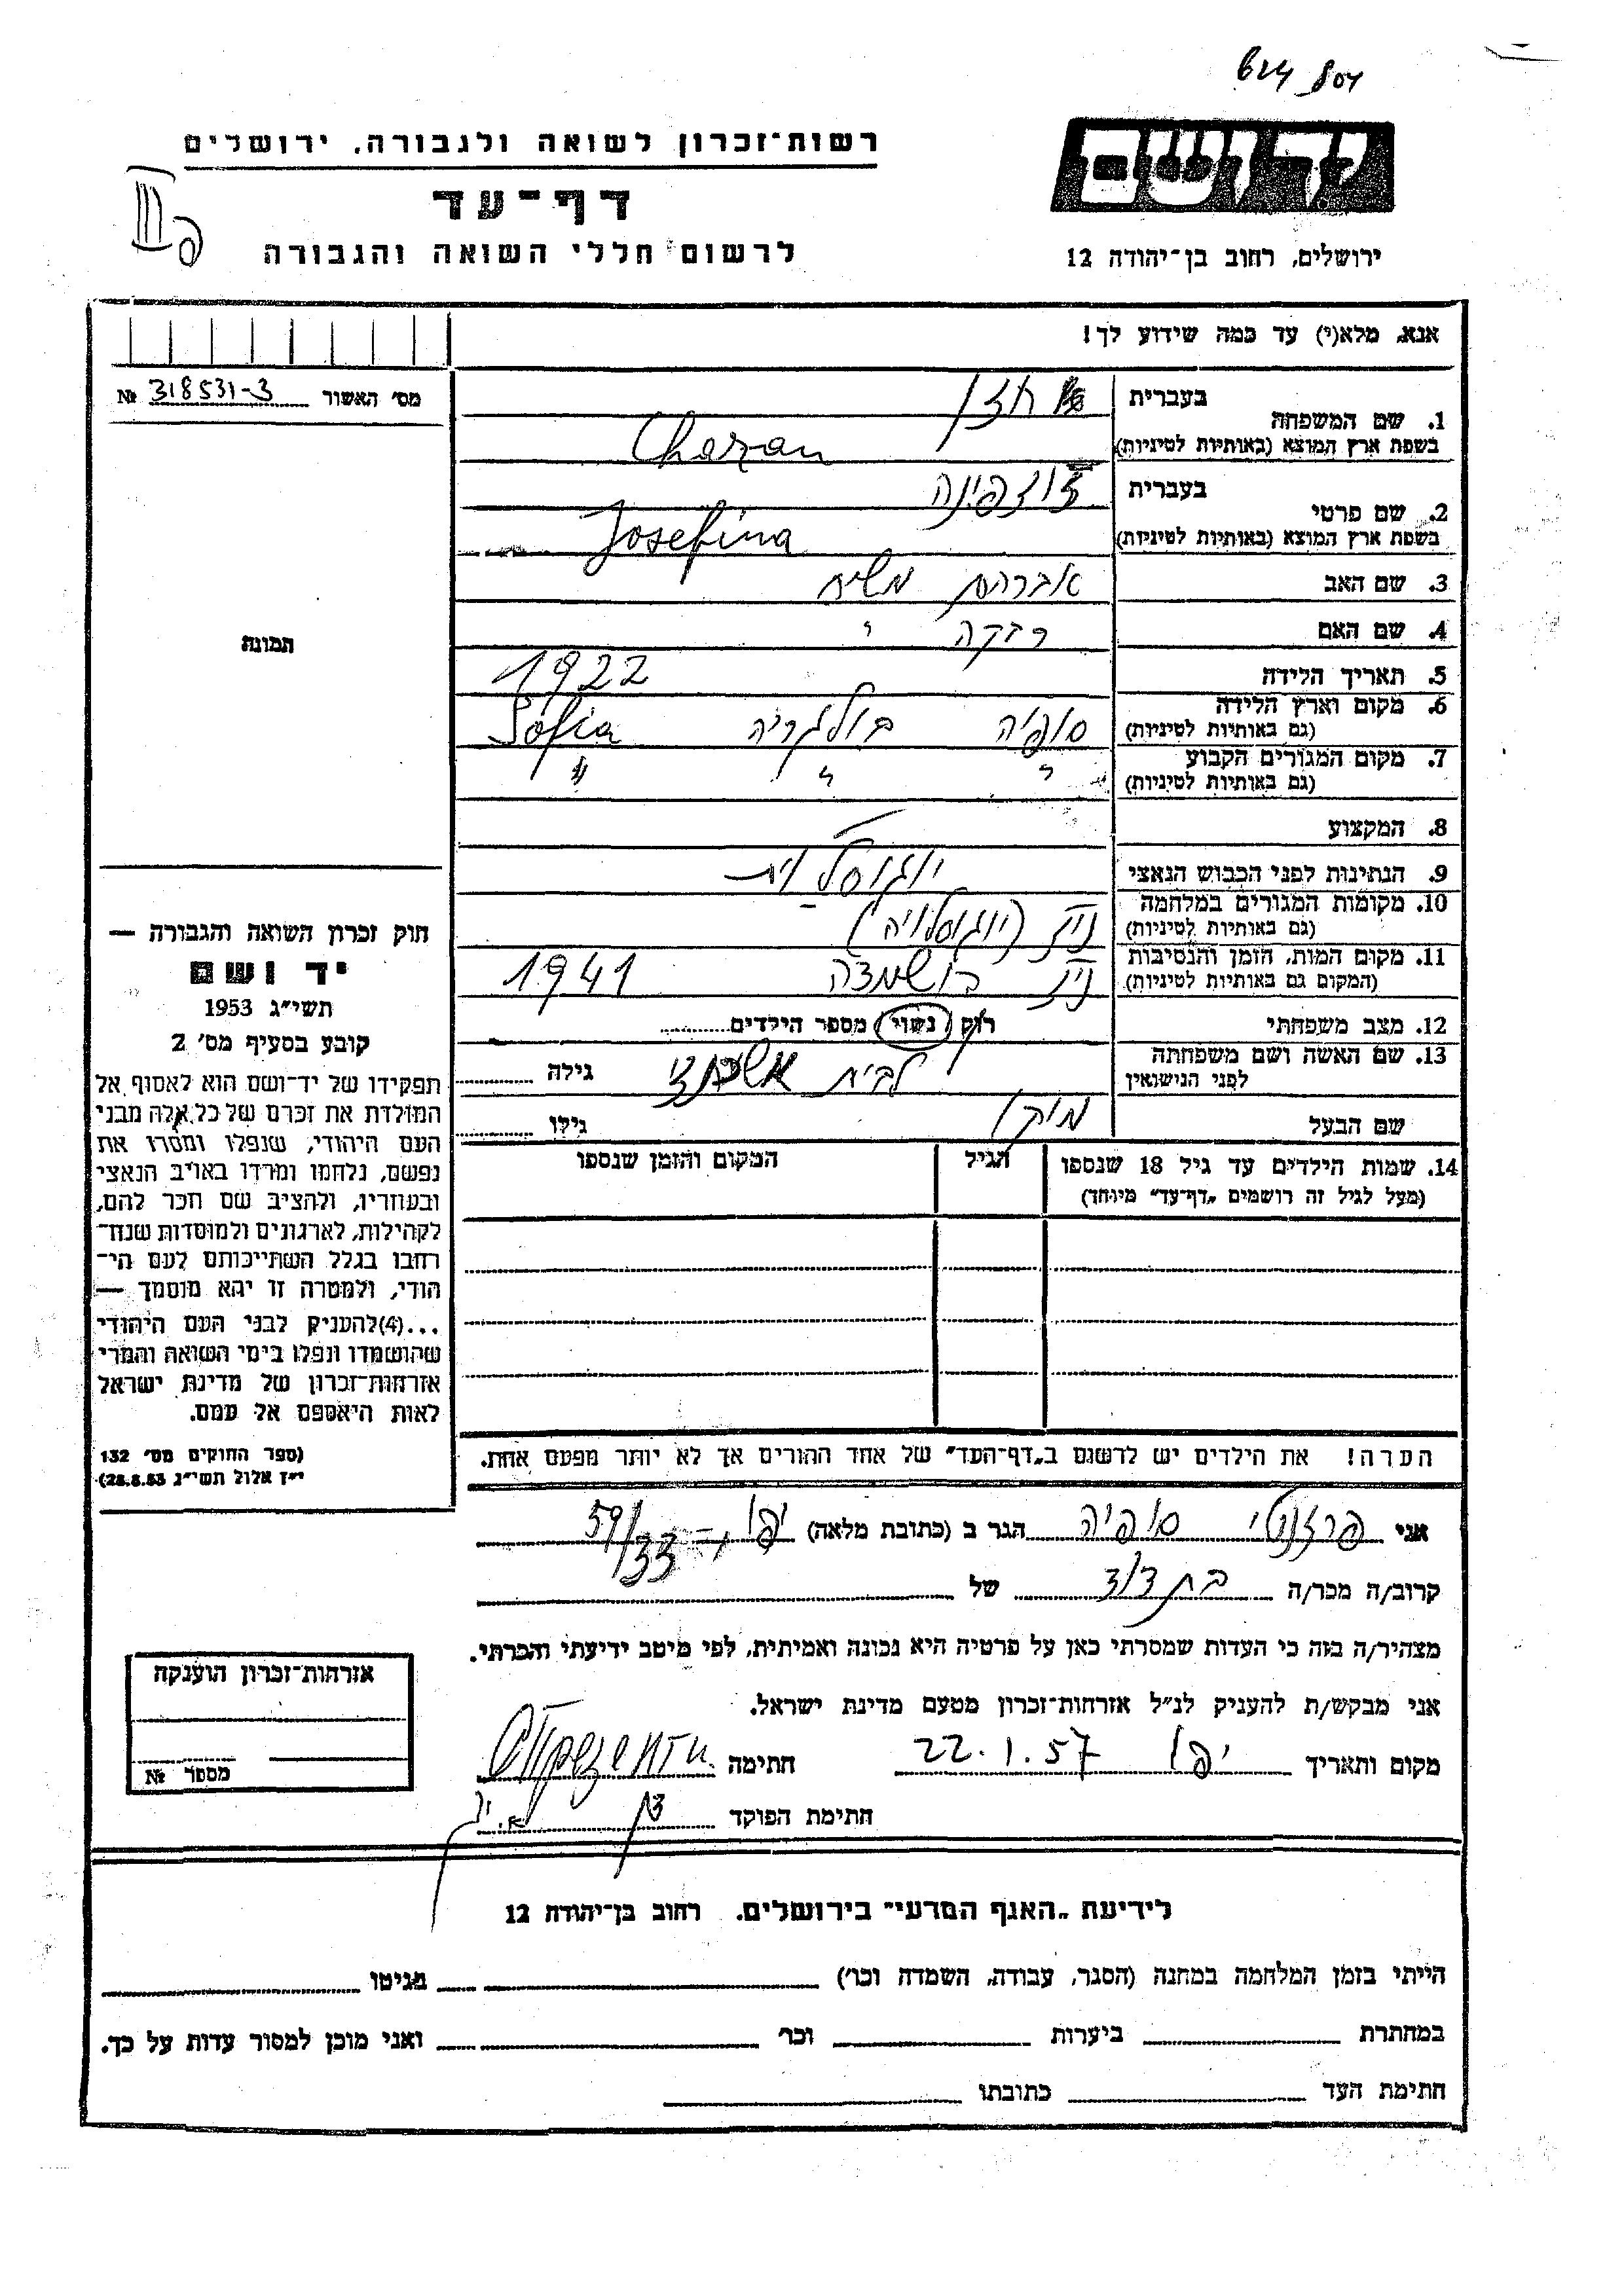 רשות־זכרון לשואה ולגבורה, ירושלים
דף־עד
לרשום חללי השואה והגבורה
יד ושם
ירושלים, רחוב בן־יהודה 12
אנא, מלא(י) עד כמה שידוע לך!
מס׳ האשור 318531-3 №
תמונה
חוק זכרון השואה והגבורה —
יד ושם
תשי״ג 1953
קובע בסעיף מס׳ 2
תפקידו של יד־ושם הוא לאסוף אל
המולדת את זכרם של כל אלה מבני
העם היהודי, שנפלו ומסרו את
נפשם, נלחמו ומרדו באויב הנאצי
ובעוזריו, ולהציב שם וזכר להם,
לקהילות, לארגונים ולמוסדות שנח־
רבו בגלל השתייכותם לעם הי־
הודי, ולמטרה זו יהא מוסמך —
...(4)להעניק לבני העם היהודי
שהושמדו ונפלו בימי השואה והמרי
אזרחות־זכרון של מדינת ישראל
לאות היאספם אל עמם.
(ספר החוקים מס׳ 132
י״ז אלול תשי״ג 28.8.53)
1. שם המשפחה
בעברית חזן
בשפת ארץ המוצא (באותיות לטיניות) Chazan
2. שם פרטי
בעברית ז׳וזפינה
בשפת ארץ המוצא (באותיות לטיניות) Josefina
3. שם האב אברהם משיח
4. שם האם רבקה "
5. תאריך הלידה 1922
6. מקום וארץ הלידה סופיה בולגריה Sofia
(גם באותיות לטיניות)
7. מקום המגורים הקבוע " " "
(גם באותיות לטיניות)
8. המקצוע —
9. הנתינות לפני הכבוש הנאצי יוגוסלבית
10. מקומות המגורים במלחמה ניש (יוגוסלויה)
(גם באותיות לטיניות)
11. מקום המות, הזמן והנסיבות ניש הושמדה 1941
(המקום גם באותיות לטיניות)
12. מצב משפחתי רוק נשוי מספר הילדים
13. שם האשה ושם משפחתה לבית אשכנזי גילה
לפני הנישואין
שם הבעל גילו
14. שמות הילדים עד גיל 18 שנספו הגיל המקום והזמן שנספו
(מעל לגיל זה רושמים „דף־עד״ מיוחד)
הערה! את הילדים יש לרשום ב„דף־העד״ של אחד ההורים אך לא יותר מפעם אחת.
אני פרזנטי סופיה הגר ב (כתובת מלאה) יפו 59/33
קרוב/ה מכר/ה בת דוד של
מצהיר/ה בזה כי העדות שמסרתי כאן על פרטיה היא נכונה ואמיתית, לפי מיטב ידיעתי והכרתי.
אני מבקש/ת להעניק לנ״ל אזרחות־זכרון מטעם מדינת ישראל.
מקום ותאריך יפו 22.1.57 חתימה Презенти
חתימת הפוקד
אזרחות־זכרון הוענקה
מספר №
לידיעת „האגף המדעי״ בירושלים, רחוב בן־יהודה 12
הייתי בזמן המלחמה במחנה (הסגר, עבודה, השמדה וכו׳) בגיטו
במחתרת ביערות וכו׳ ואני מוכן למסור עדות על כך.
חתימת העד כתובתו